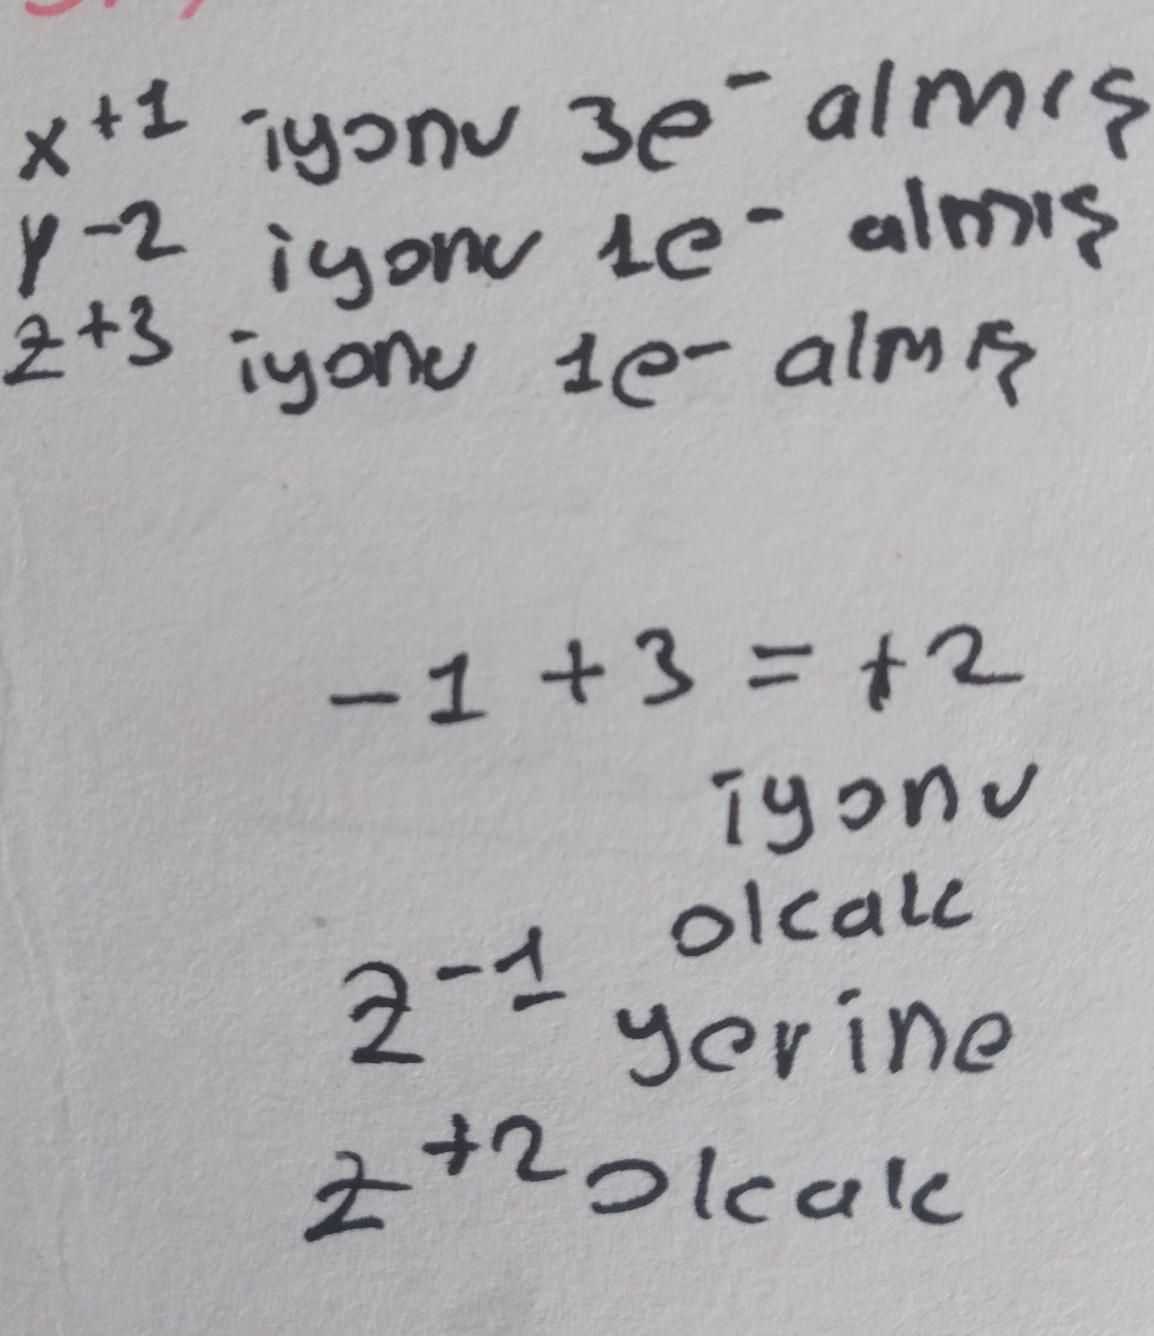 x+1 iyonu 3e- almış
y-2 iyonu 1e- almış
z+3 iyonu 1e- almış
-1 +3 = +2
iyonu
olcak
z-1 yerine
z+2 olcak